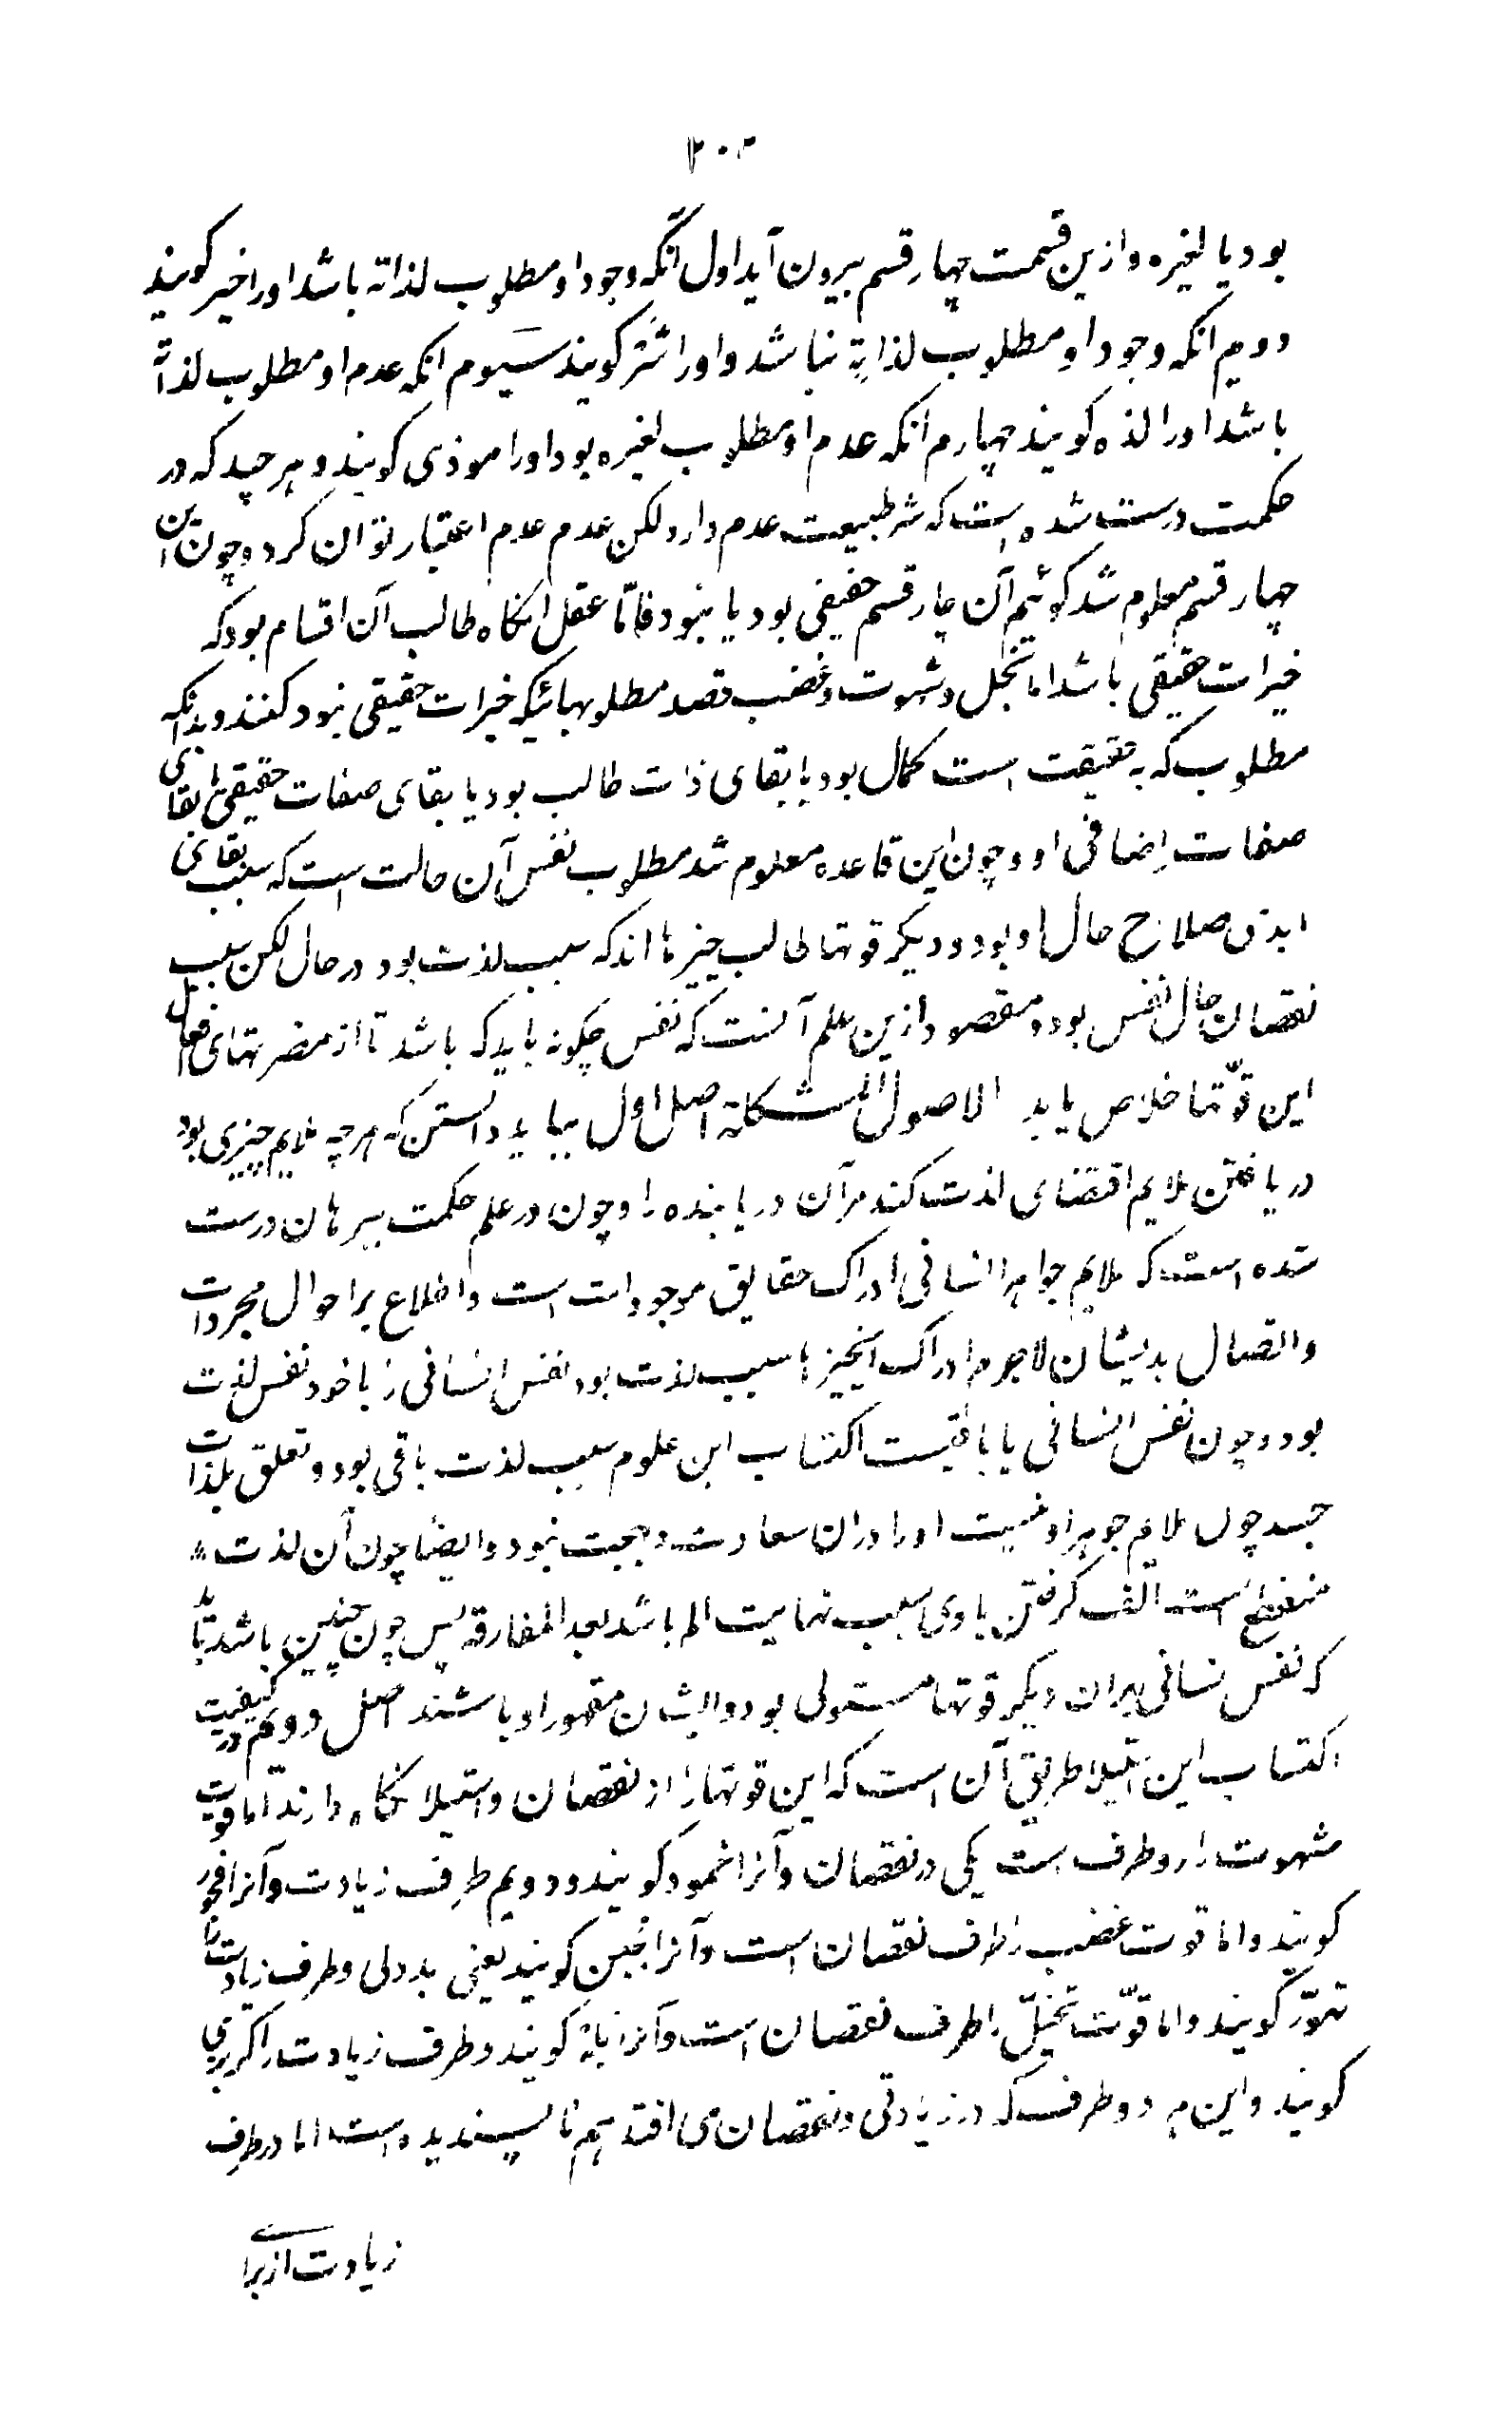 ۲۰۲
بود یا لغیره و ازین قسمت چهار قسم بیرون آید اول آنکه وجود او مطلوب لذاته باشد اورا خیر کویند
دویم انکه وجود او مطلوب لذاته نباشد و اورا شر کویند سیوم انکه عدم او مطلوب لذاته
باشد اورا لذه کویند چهارم انکه عدم او مطلوب لغیره بود اورا موذی کویند و هر چند که در
حکمت درست شده است که شر طبیعت عدم دارد لکن عدم عدم اعتبار توان کرد و چون این
چهار قسم معلوم شد کوئیم آن چار قسم حقیقی بود یا نبود فامّا عقل انکاه طالب آن اقسام بود که
خیرات حقیقی باشد اما تخیل و شهوت و غضب قصد مطلوبهائیکه خیرات حقیقی نبود کنند و بدانکه
مطلوب که به حقیقت است کمال بود یا بقای ذات طالب بود یا بقای صفات حقیقی یا بقای
صفات اضافی او و چون این قاعده معلوم شد مطلوب نفس آن حالت است که سبب بقای
ابدی صلاح حال او بود و دیکر قوتها طالب چیزها اند که سبب لذت بود در حال لکن سبب
نقصان حال نفس بود و مقصود ازین علم آنست که نفس چکونه باید که باشد تا از مضرتهای فعل
این قوّتها خلاص یابد الاصول المشکلة اصل اول بباید دانستن که هرچه ملایم چیزی بود
دریافتن ملایم اقتضای لذت کند مر آن دریابنده را و چون در علم حکمت ببرهان درست
شده است که ملایم جواهر انسانی ادراک حقایق موجودات است و اطلاع بر احوال مجردات
و اتصال بدیشان لاجرم ادراک اینچیزها سبب لذت بود نفس انسانی را با خود نفس لذت
بود و چون نفس انسانی باقیست اکتساب این علوم سبب لذت باقی بود و تعلق بلذات
جسد چون ملایم جوهر او نیست اورا دران سعادت و بهجت نبود و ایضا چون آن لذت
منقطع است الف کرفتن با وی سبب نهایت الم باشد بعد المفارقه پس چون چنین باشد باید
که نفس نسانی بران دیکر قوتها مستولی بود و ایشان مقهور او باشند اصل دویم در کیفیت
اکتساب این استیلا طریق آن است که این قوتها را از نقصان و استیلا نکاه دارند اما قوت
شهوت را دو طرف است یکی در نقصان و آنرا خمود کویند و دویم طرف زیادت و آنرا فجور
کویند و اما قوت غضب را طرف نقصان است و آنرا جبن کویند یعنی بددلی و طرف زیادت را
تهوّر کویند و اما قوّت تخیّل را طرف نقصان است و آنرا کویند و طرف زیادت را کربزی
کویند و این هر دو طرف که در زیادتی و نقصان می افتد هم ناپسندیده است اما در طرف
زیادت از برای